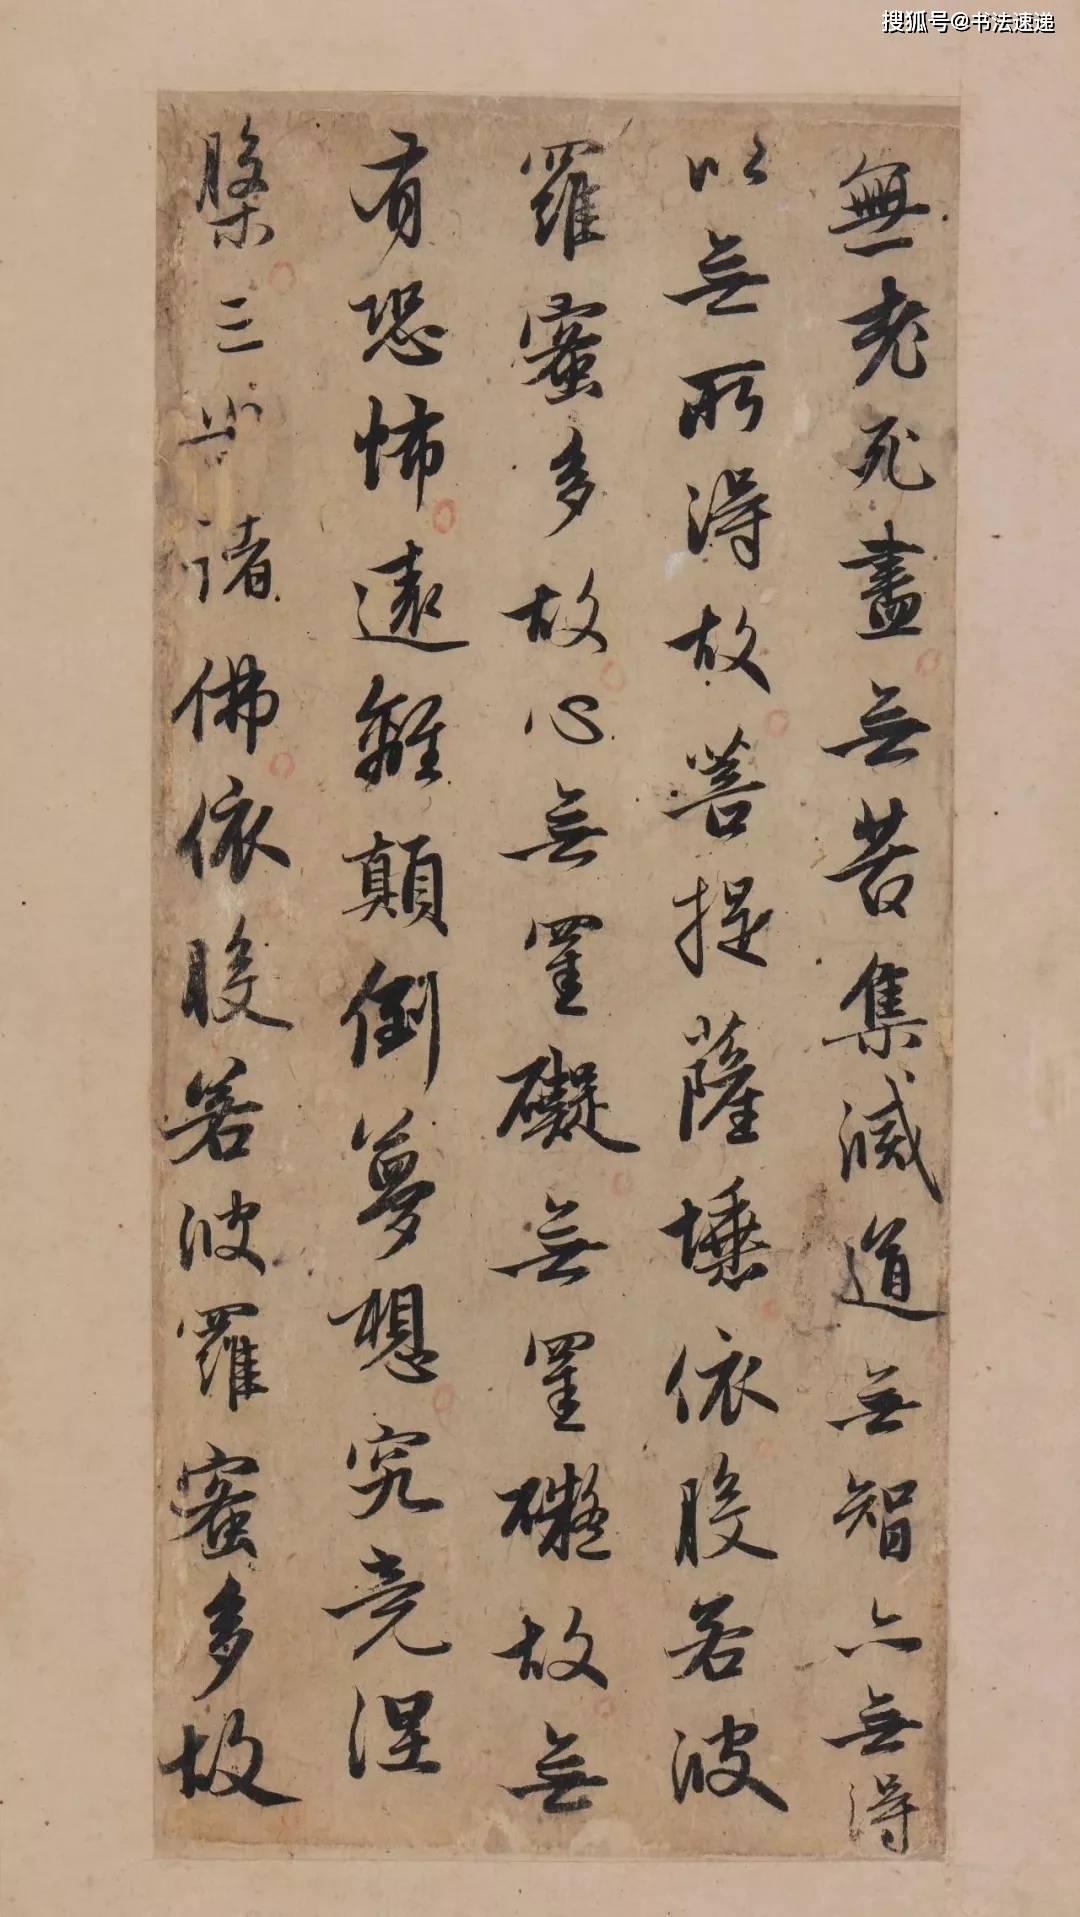 搜狐号@书法速递
無老死盡無苦集滅道無智亦無得
以無所得故菩提薩埵依般若波
羅蜜多故心無罣礙無罣礙故無
有恐怖遠離顛倒夢想究竟涅
槃三世諸佛依般若波羅蜜多故